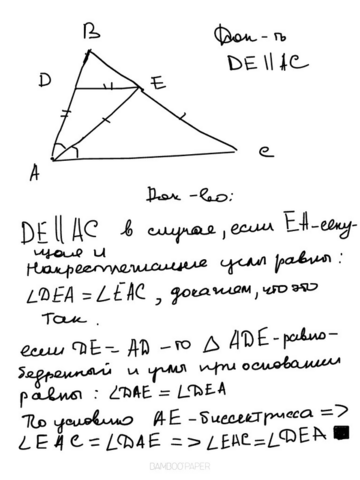 B
Док-ть
DE || AC
D
E
A
C
Док-во:
DE || AC в случае, если EA-секу-
щая и
Накрестлежащие углы равны:
∠DEA = ∠EAC, докажем, что это
так.
если DE = AD -то △ ADE -равно-
бедренный и углы при основании
равны: ∠DAE = ∠DEA
По условию AE -биссектрисса =>
∠EAC = ∠DAE => ∠EAC = ∠DEA ■
DAMODOPAPER